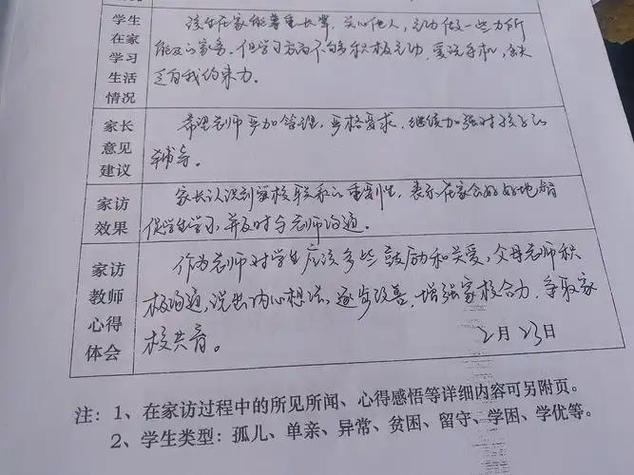 学生
在家
学习
生活
情况
该生在家能尊重长辈，关心他人，主动做一些力所
能及的家务。但学习方面不够积极主动，爱玩手机，缺
乏自我约束力。
家长
意见
建议
希望老师严加管理，严格要求，继续加强对孩子的
辅导。
家访
效果
家长认识到家校联系的重要性，表示在家会好好地督
促学生学习，并及时与老师沟通。
家访
教师
心得
体会
作为老师对学生应该多些鼓励和关爱，父母老师积
极沟通，说出内心想法，逐步改善，增强家校合力，争取家
校共育。
2月23日
注：1、在家访过程中的所见所闻、心得感悟等详细内容可另附页。
2、学生类型：孤儿、单亲、异常、贫困、留守、学困、学优等。